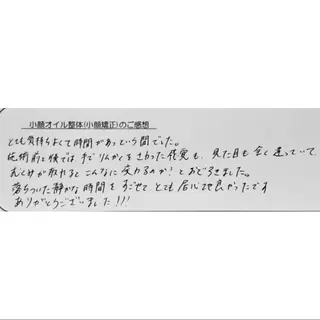 小顔オイル整体(小顔矯正)のご感想
とても気持ちよくて時間があっという間でした。
施術前と後では、手でりんかくをさわった感覚も、見た目も全く違っていて
むくみが取れるとこんなに変わるのか！とおどろきました。
落ちついた静かな時間をすごせて とても居心地良かったです
ありがとうございました!!!